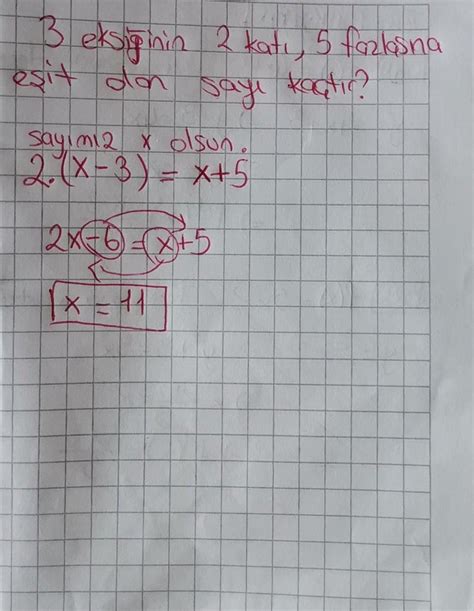 3 eksiğinin 2 katı, 5 fazlasına
eşit olan sayı kaçtır?
sayımız x olsun.
2.(x-3) = x+5
2x-6=x+5
x = 11